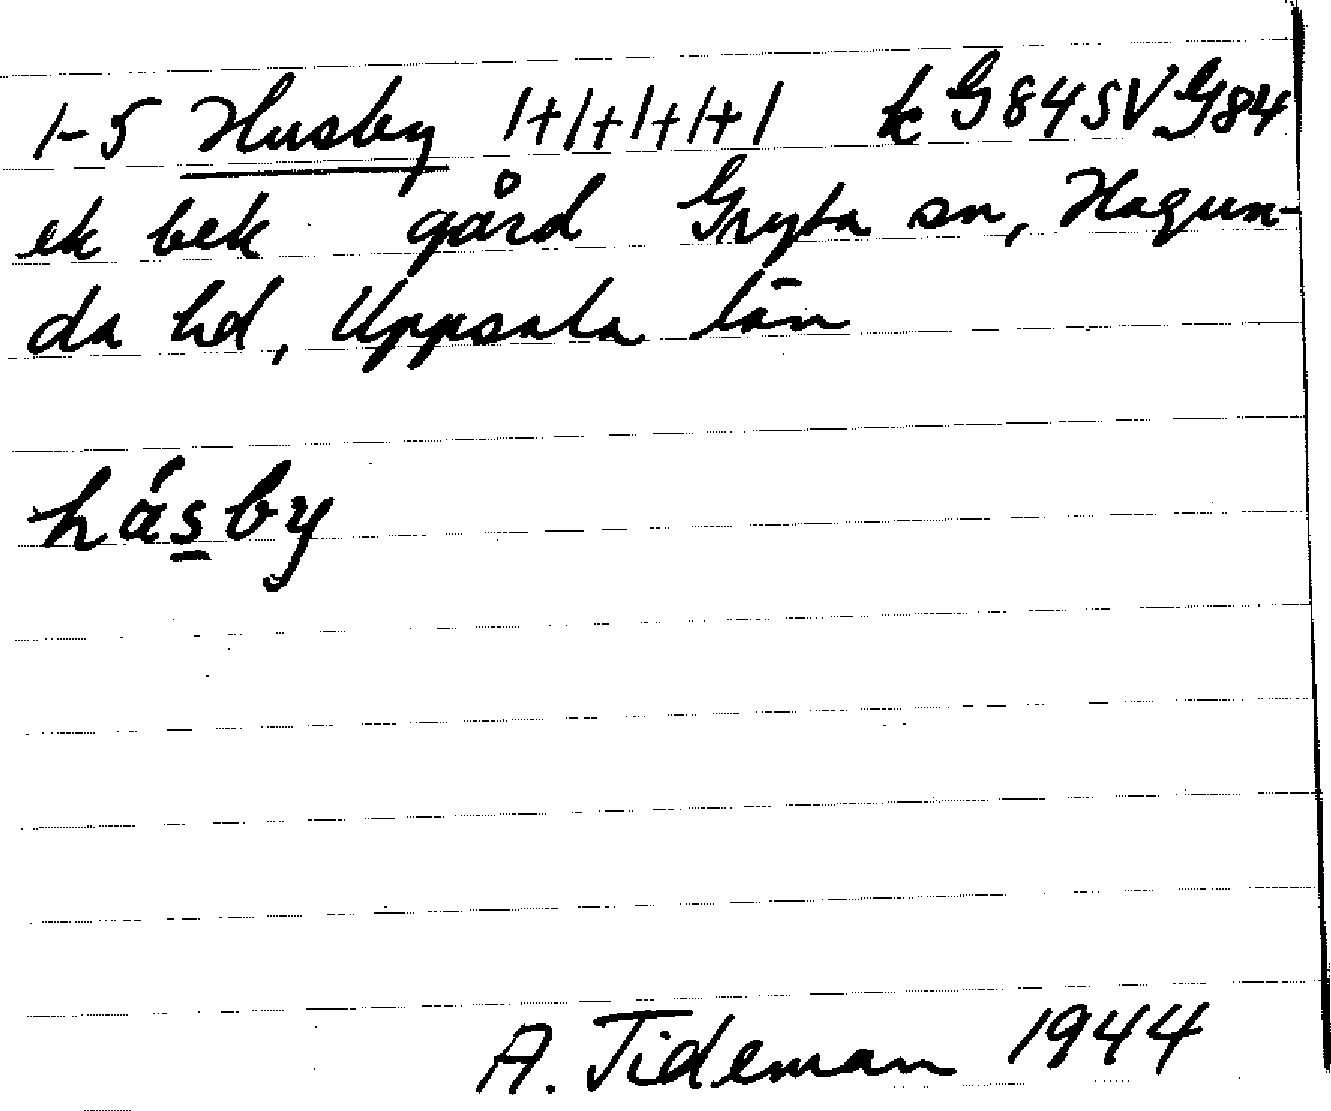 1-5 Husby 1+1+1+1+1 k G 84 SV G84
ek bek gård Gryta sn, Hagun-
da hd, Uppsala län
hásby
A. Tideman 1944